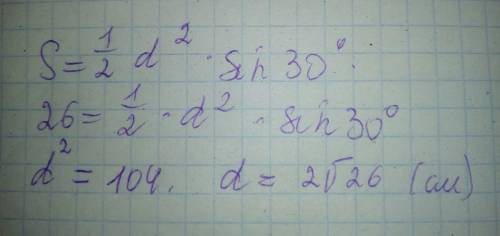 S = 1/2 d² · sin 30°.
26 = 1/2 · d² · sin 30°
d² = 104. d = 2√26 (см)